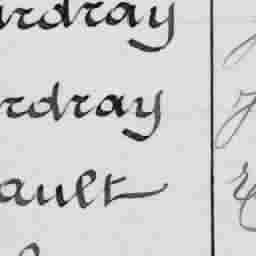 urdray
rdray
ault